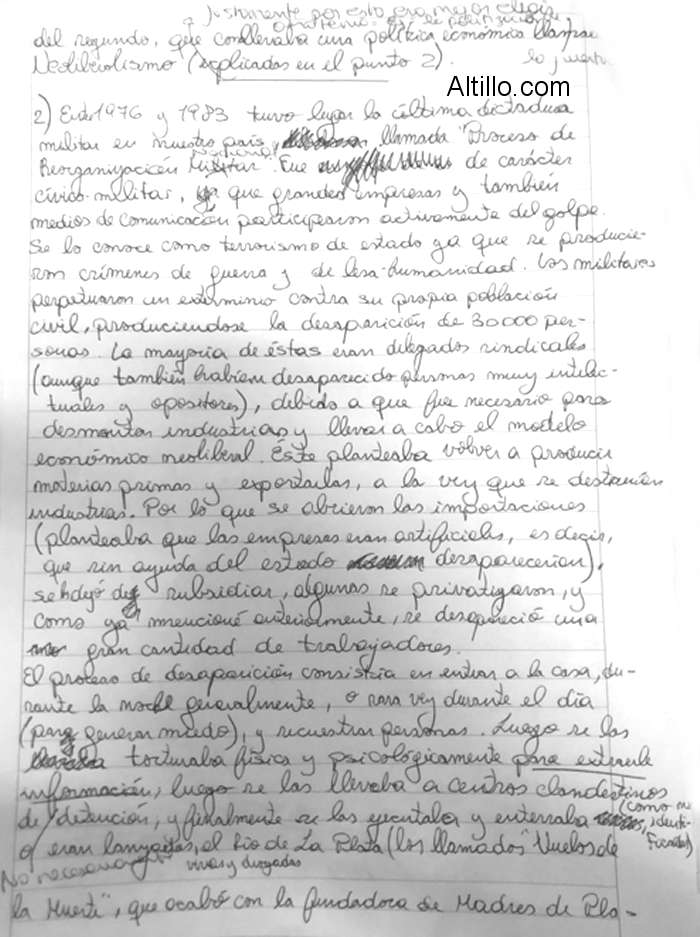 Justamente por esto era mejor elegir
Altillo.com
del segundo, que conllevaba una política económica llamada
Neoliberalismo (explicadas en el punto 2).
lo puente
2) Entre 1976 y 1983 tuvo lugar la última dictadura
militar en nuestro país, llamada "Proceso de
Reorganización Nacional". Fue de carácter
cívico-militar, ya que grandes empresas y también
medios de comunicación participaron activamente del golpe.
Se lo conoce como terrorismo de estado ya que se producie-
ron crímenes de guerra y de lesa-humanidad. Los militares
perpetuaron un exterminio contra su propia población
civil, produciendose la desaparición de 30000 per-
sonas. La mayoría de éstas eran delegados sindicales
(aunque también habían desaparecido personas muy intelec-
tuales y opositores), debido a que fue necesario para
desmontar industrias y llevar a cabo el modelo
económico neoliberal. Éste planteaba volver a producir
materias primas y exportarlas, a la vez que se destruían
industrias. Por lo que se abrieron las importaciones
(planteaba que las empresas eran artificiales, es decir,
que sin ayuda del estado desaparecerían),
se dejó de subsidiar, algunas se privatizaron, y
como ya mencioné anteriormente, se desapareció una
gran cantidad de trabajadores.
El proceso de desaparición consistía en entrar a la casa, du-
rante la noche generalmente, o rara vez durante el día
(para generar miedo), y secuestrar personas. Luego se las
torturaba física y psicológicamente para extraerle
información, luego se las llevaba a centros clandestinos
de detención, y finalmente se las ejecutaba y enterraba (como no identi-
ficados)
o eran lanzadas, el Río de La Plata (los llamados "Vuelos de
No necesariamente
vivas y drogadas
la Muerte", que acabó con la fundadora de Madres de Pla-